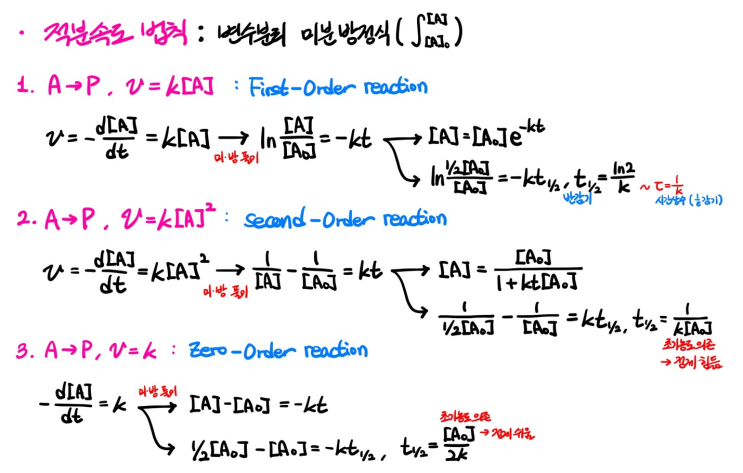 · 적분속도 법칙 : 변수분리 미분방정식 (∫_{[A]₀}^{[A]})
1. A→P, v=k[A] : First-Order reaction
v = -d[A]/dt = k[A] → ln [A]/[A₀] = -kt → [A]=[A₀]e^{-kt}
미·방 풀이
→ ln ½[A₀]/[A₀] = -kt_{1/2}, t_{1/2} = ln2/k ~ τ=1/k
반감기 시간상수
2. A→P, v=k[A]² : Second-Order reaction
v = -d[A]/dt = k[A]² → 1/[A] - 1/[A₀] = kt → [A] = [A₀]/(1+kt[A₀])
미·방 풀이
→ 1/(1/2[A₀]) - 1/[A₀] = kt_{1/2}, t_{1/2} = 1/(k[A₀])
초기농도 의존
→ 전체 힘듦
3. A→P, v=k : Zero-Order reaction
-d[A]/dt = k → [A]-[A₀] = -kt
미·방 풀이
초기농도 의존
→ ½[A₀]-[A₀] = -kt_{1/2}, t_{1/2} = [A₀]/2k → 전체 쉬움